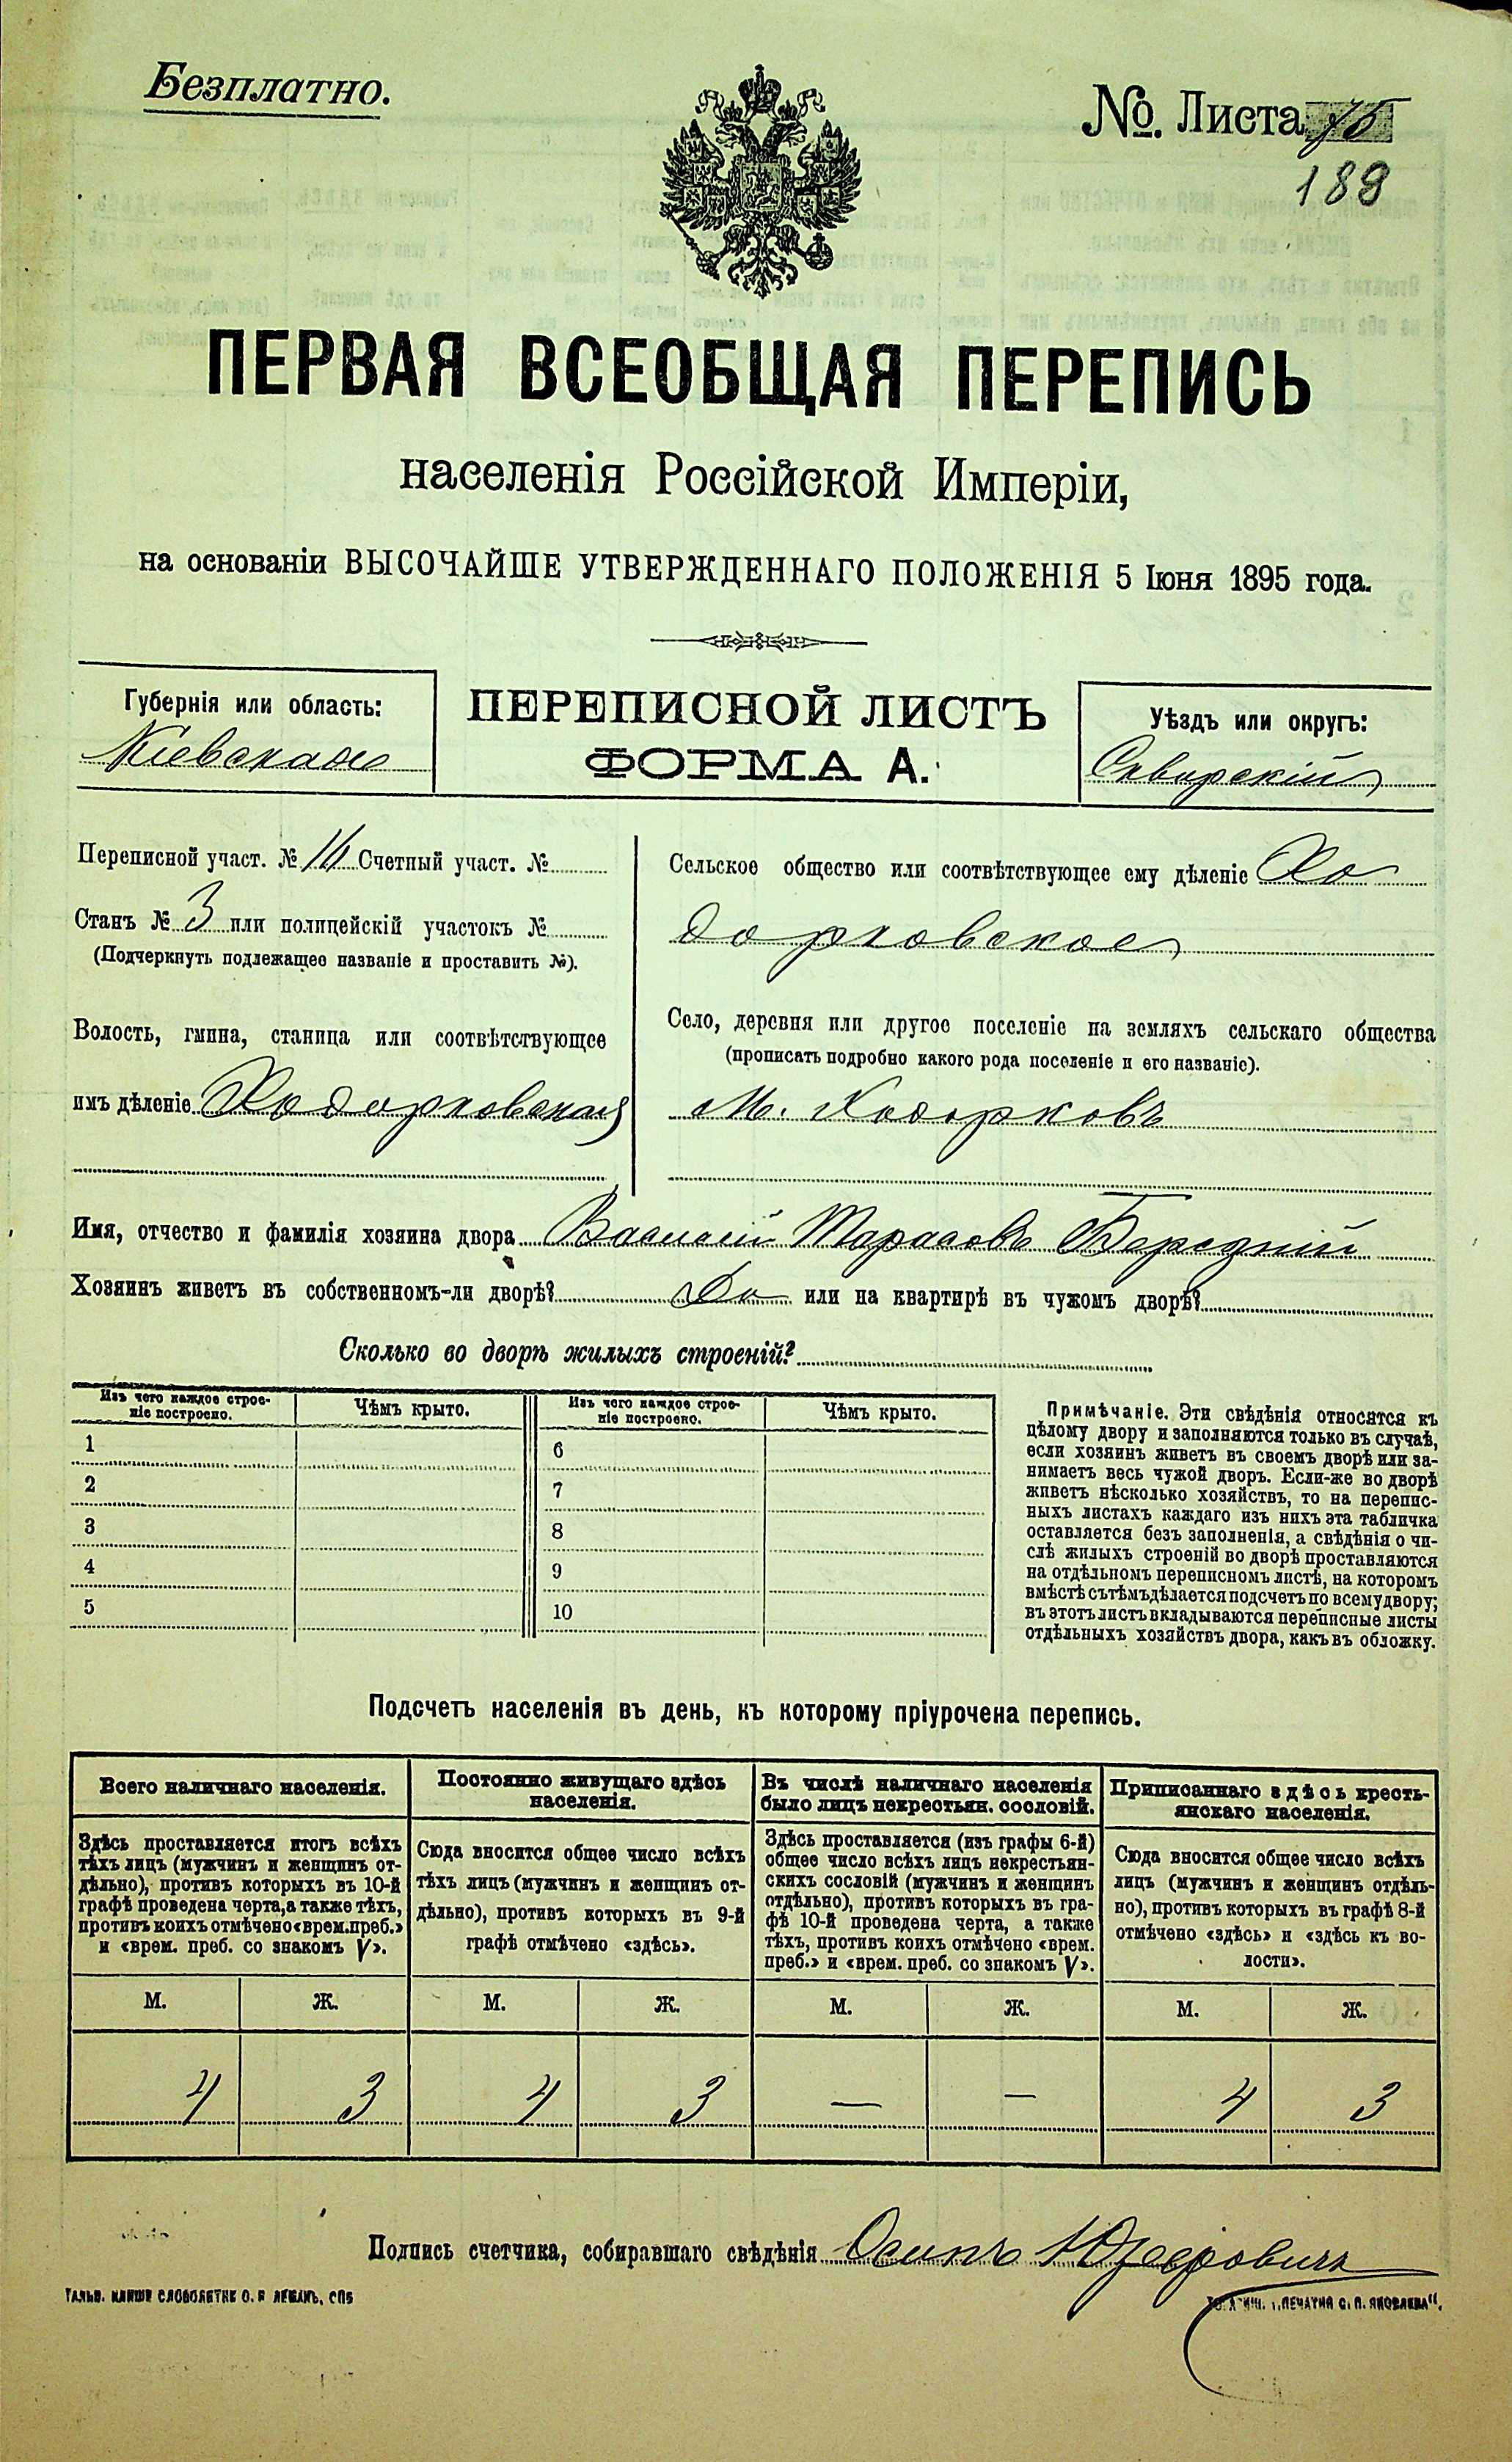 Безплатно.
№. Листа 75
189
ПЕРВАЯ ВСЕОБЩАЯ ПЕРЕПИСЬ
населенія Россійской Имперіи,
на основаніи ВЫСОЧАЙШЕ УТВЕРЖДЕННАГО ПОЛОЖЕНІЯ 5 Іюня 1895 года.
Губернія или область:
Кіевская
ПЕРЕПИСНОЙ ЛИСТЪ
ФОРМА А.
Уѣздъ или округъ:
Сквирскій
Переписной участ. № Счетный участ. №
Станъ № 3 или полицейскій участокъ №
(Подчеркнуть подлежащее названіе и проставить №).
Волость, гмина, станица или соотвѣтствующее
имъ дѣленіе Ходорковская
Сельское общество или соотвѣтствующее ему дѣленіе Хо
дорковское
Село, деревня или другое поселеніе на земляхъ сельскаго общества
(прописать подробно какого рода поселеніе и его названіе).
м. Ходорковъ
Имя, отчество и фамилія хозяина двора Василій Тарасовъ
Хозяинъ живетъ въ собственномъ-ли дворѣ? Да или на квартирѣ въ чужомъ дворѣ?
Сколько во дворѣ жилыхъ строеній?
Изъ чего каждое строе-
ніе построено.
Чѣмъ крыто.
Изъ чего каждое строе-
ніе построено.
Чѣмъ крыто.
1 6
2 7
3 8
4 9
5 10
Примѣчаніе. Эти свѣдѣнія относятся къ
цѣлому двору и заполняются только въ случаѣ,
если хозяинъ живетъ въ своемъ дворѣ или за-
нимаетъ весь чужой дворъ. Если-же во дворѣ
живетъ нѣсколько хозяйствъ, то на перепис-
ныхъ листахъ каждаго изъ нихъ эта табличка
оставляется безъ заполненія, а свѣдѣнія о чи-
слѣ жилыхъ строеній во дворѣ проставляются
на отдѣльномъ переписномъ листѣ, на которомъ
вмѣстѣ съ тѣмъ дѣлается подсчетъ по всему двору;
въ этотъ листъ вкладываются переписные листы
отдѣльныхъ хозяйствъ двора, какъ въ обложку.
Подсчетъ населенія въ день, къ которому пріурочена перепись.
Всего наличнаго населенія.
Здѣсь проставляется итогъ всѣхъ
тѣхъ лицъ (мужчинъ и женщинъ от-
дѣльно), противъ которыхъ въ 10-й
графѣ проведена черта, а также тѣхъ,
противъ коихъ отмѣчено «врем. преб.»
и «врем. преб. со знакомъ V».
Постоянно живущаго здѣсь
населенія.
Сюда вносится общее число всѣхъ
тѣхъ лицъ (мужчинъ и женщинъ от-
дѣльно), противъ которыхъ въ 9-й
графѣ отмѣчено «здѣсь».
Въ числѣ наличнаго населенія
было лицъ некрестьян. сословій.
Здѣсь проставляется (изъ графы 6-й)
общее число всѣхъ лицъ некрестьян-
скихъ сословій (мужчинъ и женщинъ
отдѣльно), противъ которыхъ въ гра-
фѣ 10-й проведена черта, а также
тѣхъ, противъ коихъ отмѣчено «врем.
преб.» и «врем. преб. со знакомъ V».
Приписаннаго здѣсь кресть-
янскаго населенія.
Сюда вносится общее число всѣхъ
лицъ (мужчинъ и женщинъ отдѣль-
но), противъ которыхъ въ графѣ 8-й
отмѣчено «здѣсь» и «здѣсь къ во-
лости».
М. Ж. М. Ж. М. Ж. М. Ж.
4 3 4 3 — — 4 3
Подпись счетчика, собиравшаго свѣдѣнія Осипъ